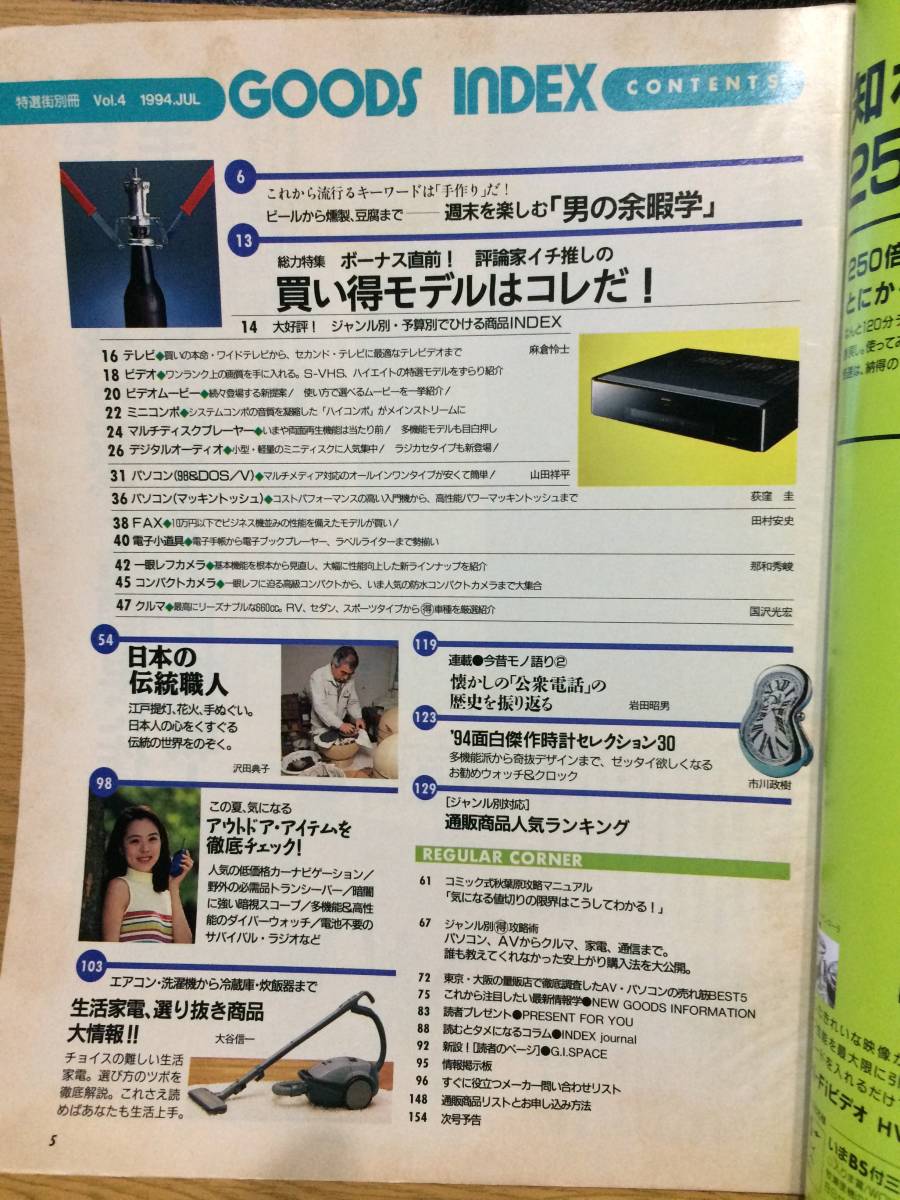 特選街別冊 Vol.4 1994.JUL
GOODS INDEX
CONTENTS
6
これから流行るキーワードは「手作り」だ!
ビールから燻製、豆腐まで――週末を楽しむ「男の余暇学」
13
総力特集 ボーナス直前! 評論家イチ推しの
買い得モデルはコレだ!
14 大好評! ジャンル別・予算別でひける商品INDEX
16 テレビ◆買いの本命・ワイドテレビから、セカンド・テレビに最適なテレビデオまで 麻倉怜士
18 ビデオ◆ワンランク上の画質を手に入れる。S-VHS、ハイエイトの特選モデルをずらり紹介
20 ビデオムービー◆続々登場する新提案! 使い方で選べるムービーを一挙紹介!
22 ミニコンポ◆システムコンポの音質を凝縮した「ハイコンポ」がメインストリームに
24 マルチディスクプレーヤー◆いまや両面再生機能は当たり前! 多機能モデルも目白押し
26 デジタルオーディオ◆小型・軽量のミニディスクに人気集中! ラジカセタイプも新登場!
31 パソコン(98&DOS/V)◆マルチメディア対応のオールインワンタイプが安くて簡単! 山田祥平
36 パソコン(マッキントッシュ)◆コストパフォーマンスの高い入門機から、高性能パワーマッキントッシュまで 荻窪 圭
38 FAX◆10万円以下でビジネス機並みの性能を備えたモデルが買い! 田村安史
40 電子小道具◆電子手帳から電子ブックプレーヤー、ラベルライターまで勢揃い
42 一眼レフカメラ◆基本機能を根本から見直し、大幅に性能向上した新ラインナップを紹介 那和秀峻
45 コンパクトカメラ◆一眼レフに迫る高級コンパクトから、いま人気の防水コンパクトカメラまで大集合
47 クルマ◆最高にリーズナブルな660cc。RV、セダン、スポーツタイプから㊝車種を厳選紹介 国沢光宏
54
日本の
伝統職人
江戸提灯、花火、手ぬぐい。
日本人の心をくすぐる
伝統の世界をのぞく。
沢田典子
98
この夏、気になる
アウトドア・アイテムを
徹底チェック!
人気の低価格カーナビゲーション/
野外の必需品トランシーバー/暗闇
に強い暗視スコープ/多機能&高性
能のダイバーウォッチ/電池不要の
サバイバル・ラジオなど
103
エアコン・洗濯機から冷蔵庫・炊飯器まで
生活家電、選り抜き商品
大情報!! 大谷信一
チョイスの難しい生活
家電。選び方のツボを
徹底解説。これさえ読
めばあなたも生活上手。
119
連載●今昔モノ語り②
懐かしの「公衆電話」の
歴史を振り返る 岩田昭男
123
'94面白傑作時計セレクション30
多機能派から奇抜デザインまで、ゼッタイ欲しくなる
お勧めウォッチ&クロック
市川政樹
129
[ジャンル別対応]
通販商品人気ランキング
REGULAR CORNER
61 コミック式秋葉原攻略マニュアル
「気になる値切りの限界はこうしてわかる!」
67 ジャンル別㊝攻略術
パソコン、AVからクルマ、家電、通信まで。
誰も教えてくれなかった安上がり購入法を大公開。
72 東京・大阪の量販店で徹底調査したAV・パソコンの売れ筋BEST5
75 これから注目したい最新情報学●NEW GOODS INFORMATION
83 読者プレゼント●PRESENT FOR YOU
88 読むとタメになるコラム●INDEX journal
92 新設![読者のページ]●G.I.SPACE
95 情報掲示板
96 すぐに役立つメーカー問い合わせリスト
148 通販商品リストとお申し込み方法
154 次号予告
5
知
25
250倍
とにか
なんと120分
は、納得の
きれいな映像が
を最大限に引
を入れるだけ
Fiビデオ HV
いまBS付三